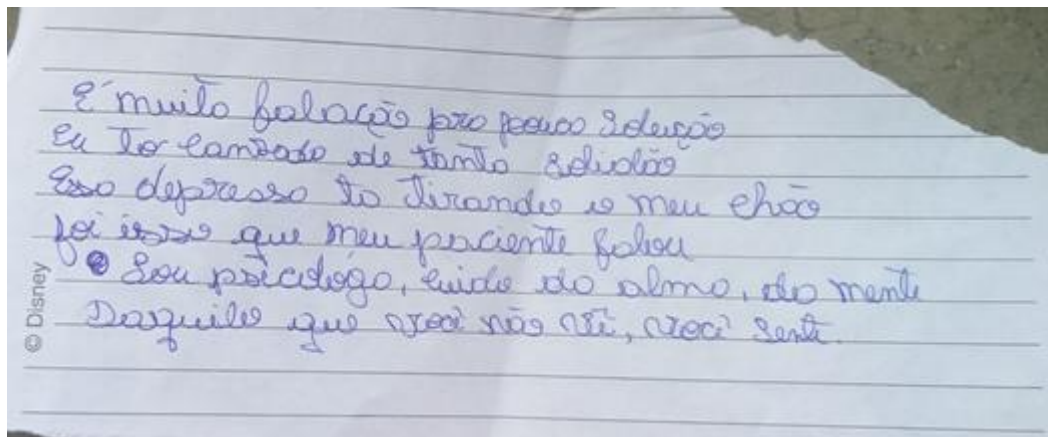 É muita falação pra pouca solução
Eu to cansado de tanta solidão
Essa depressa ta tirando o meu chão
foi isso que meu paciente falou
Sou psicologo, cuido da alma, da mente
Daquilo que você não vê, você sente.
© Disney